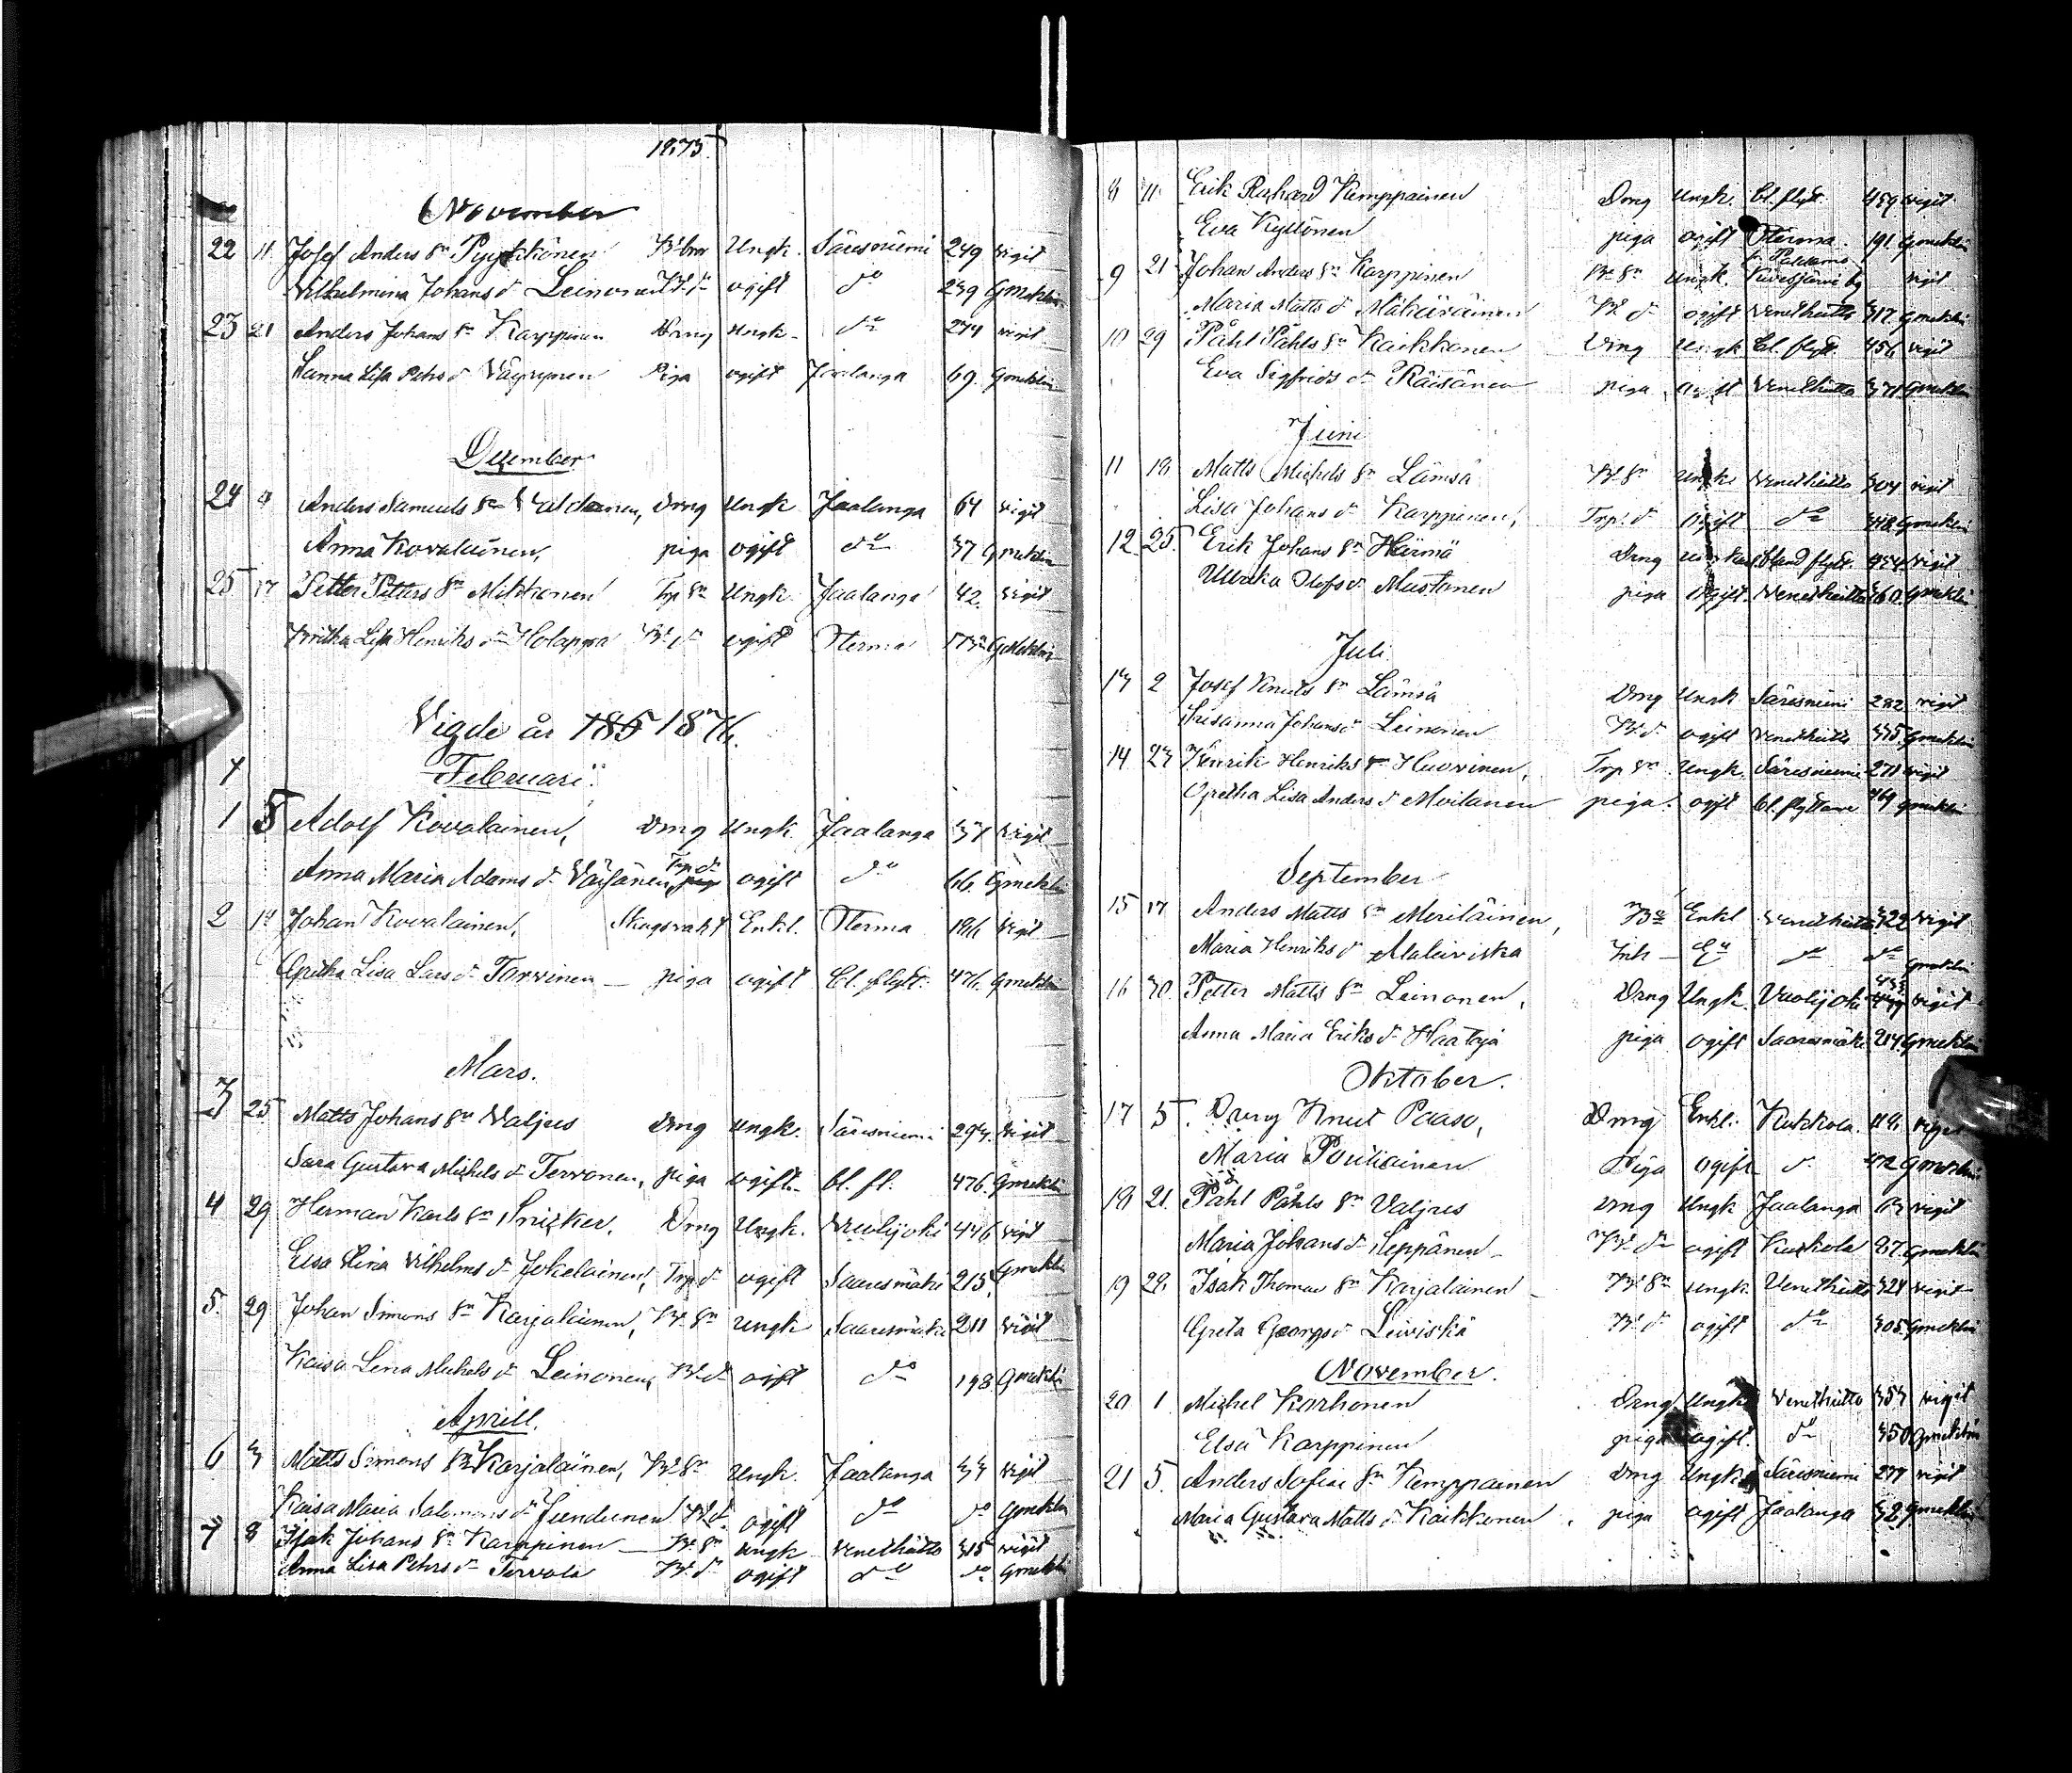 1875
November
22 11 Josef Anders Sn Pyykkönen Ungk. Säresniemi 249 vigit
Vilhelmina Johans dr Leinonen ogift do 239 Gmeklin
23 21 Anders Johans Sn Karppinen Drng ungk. do 274 vigit
Hanna Lisa Pehrs dr Väyrynen Piga ogift Joulanga 69. Gmeklin
December
24 Anders Samuels Sn Drng Ungk Jaalanga 64 vigit
Anna Kovalainen, piga ogift do 37 Gmeklin
25 17 Petter Petters Sn Mikkonen Trp Sn Ungk. Jaalanga 42. vigit
Lisa Henriks dr Holappa ogift Oterma Gmeklin
Vigde år 185 1876.
Februari.
1 5 Adolf Kovalainen, Drng Ungk Jaalanga 37 vigit
Anna Maria Adams dr Väisänen, Trp. dr ogift do 66. Gmeklin
2 Johan Kovalainen, Skogsvakt Enkl. Oterma 186 vigit
Gretha Lisa Lars dr Tervinen piga ogift bl. flytt. 476. Gmeklin
Mars.
3 25 Matts Johans Sn Valjus Drng Ungk. Säresniemi 293. vigit
Sara Gustava Michels dr Tervonen, piga ogift bl. fl. 476. Gmeklin
4 29 Herman Karls Sn Snicker. Drng Ungk. Vuolijoki 446 vigit
Elsa Stina Vilhelms dr Jokelainen, Trp dr ogift Saaresmäki 215. Gmeklin
5. 29 Johan Simons Sn Karjalainen, Bd. Sn ungk Saaresmäki 211 vigit
Kaisa Lena Michels dr Leinonen, Bd. dr ogift do 198 Gmeklin
Aprill.
6 3 Matts Simons Sn Karjalainen, Bd Sn Ungk. Jaalanga 33 vigit
Kaisa Maria Salomons dr Jundunen Bd. dr ogift do do Gmeklin
7 8 Isak Johans Sn Karppinen Bd. Sn ungk Venetheitto 315 vigit
Anna Lisa Pehrs dr Tervola Bd. dr ogift do do Gmeklin
8 11 Erik Richard Kemppainen Drng Ungk. bl. flytt. 459 vigit
Eva Kyllönen piga ogift Oterma 191. Gmeklin
9 21 Johan Anders Sn Karppinen Bd. Sn ungk. fr. Paldamo Kivesjärvi by vigit
Maria Matts dr Mäkäräinen Bd dr ogift Venetheitto 317 Gmeklin
10 29 Påhl Påhls Sn Kaikkonen Drng Ungk bl. flytt. 456 vigit
Eva Sigfrids dr Räisänen piga ogift Venetheitto 371 Gmeklin
Juni
11 18 Matts Michels Sn Lämsä Bd Sn ungk. Venetheitto 304 vigit
Lisa Johans dr Karppinen, Trp. dr ogift do 348 Gmeklin
12 25. Erik Johans Sn Härmä Drng ungkarl bland flytt. 454 vigit
Ulrika Olofs dr Mustonen piga ogift. Venetheitto 360. Gmeklin
Juli
13 2 Josef Knuts Sn Lämsä Drng Ungk Säresniemi 282 vigit
Susanna Johans dr Leinonen Bd. dr ogift Venetheitto 335 Gmeklin
14 23 Henrik Henriks Sn Huovinen, Trp Sn Ungk. Säresniemi 271 vigit
Gretha Lisa Anders dr Moilanen piga. ogift bl. flyttare 469 Gmeklin
September
15 17 Anders Matts Sn Meriläinen, Bd Enkl Venetheitto 322 vigit
Maria Henriks dr Maleiviska Inh Ea do do Gmeklin
16 30. Petter Matts Sn Leinonen, Drng Ungk. Vuolijoki vigit
Anna Maria Eriks dr Haataja piga ogift Saaresmäki 214. Gmeklin
Oktober.
17 5. Drng Knut Paaso, Drng Enkl. Kukkola. 118. vigit
Maria Pouliainen Piga ogift do Gmeklin
18 21. Påhl Påhls Sn Valjus Drng Ungk Jaalanga 63 vigit
Maria Johans dr Seppänen Bd. dr ogift Kukkola 87 Gmeklin
19 28. Isak Thomas Sn Karjalainen Bd Sn ungk. Venetheitto 324 vigit
Greta Georgs dr Leiviskä Bd. dr ogift do 305 Gmeklin
November.
20 1 Michel Karhonen Drng Ungk Venetheitto 353 vigit
Elsa Karppinen piga ogift. do 350 Gmeklin
21 5. Anders Sofias Sn Kemppainen Drng Ungk. Säresniemi 277 vigit
Maria Gustava Matts dr Kaikkonen. piga ogift Jaalanga 32 Gmeklin